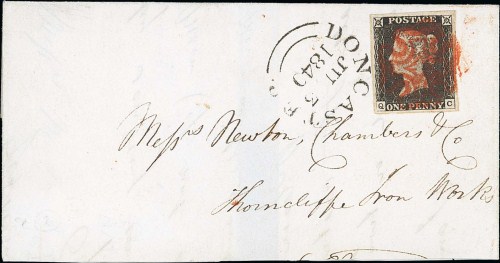 DONCASTER
JU 5
1840
POSTAGE
ONE PENNY
Q C
Mess^rs Newton, Chambers & Co
Thorncliffe Iron Works